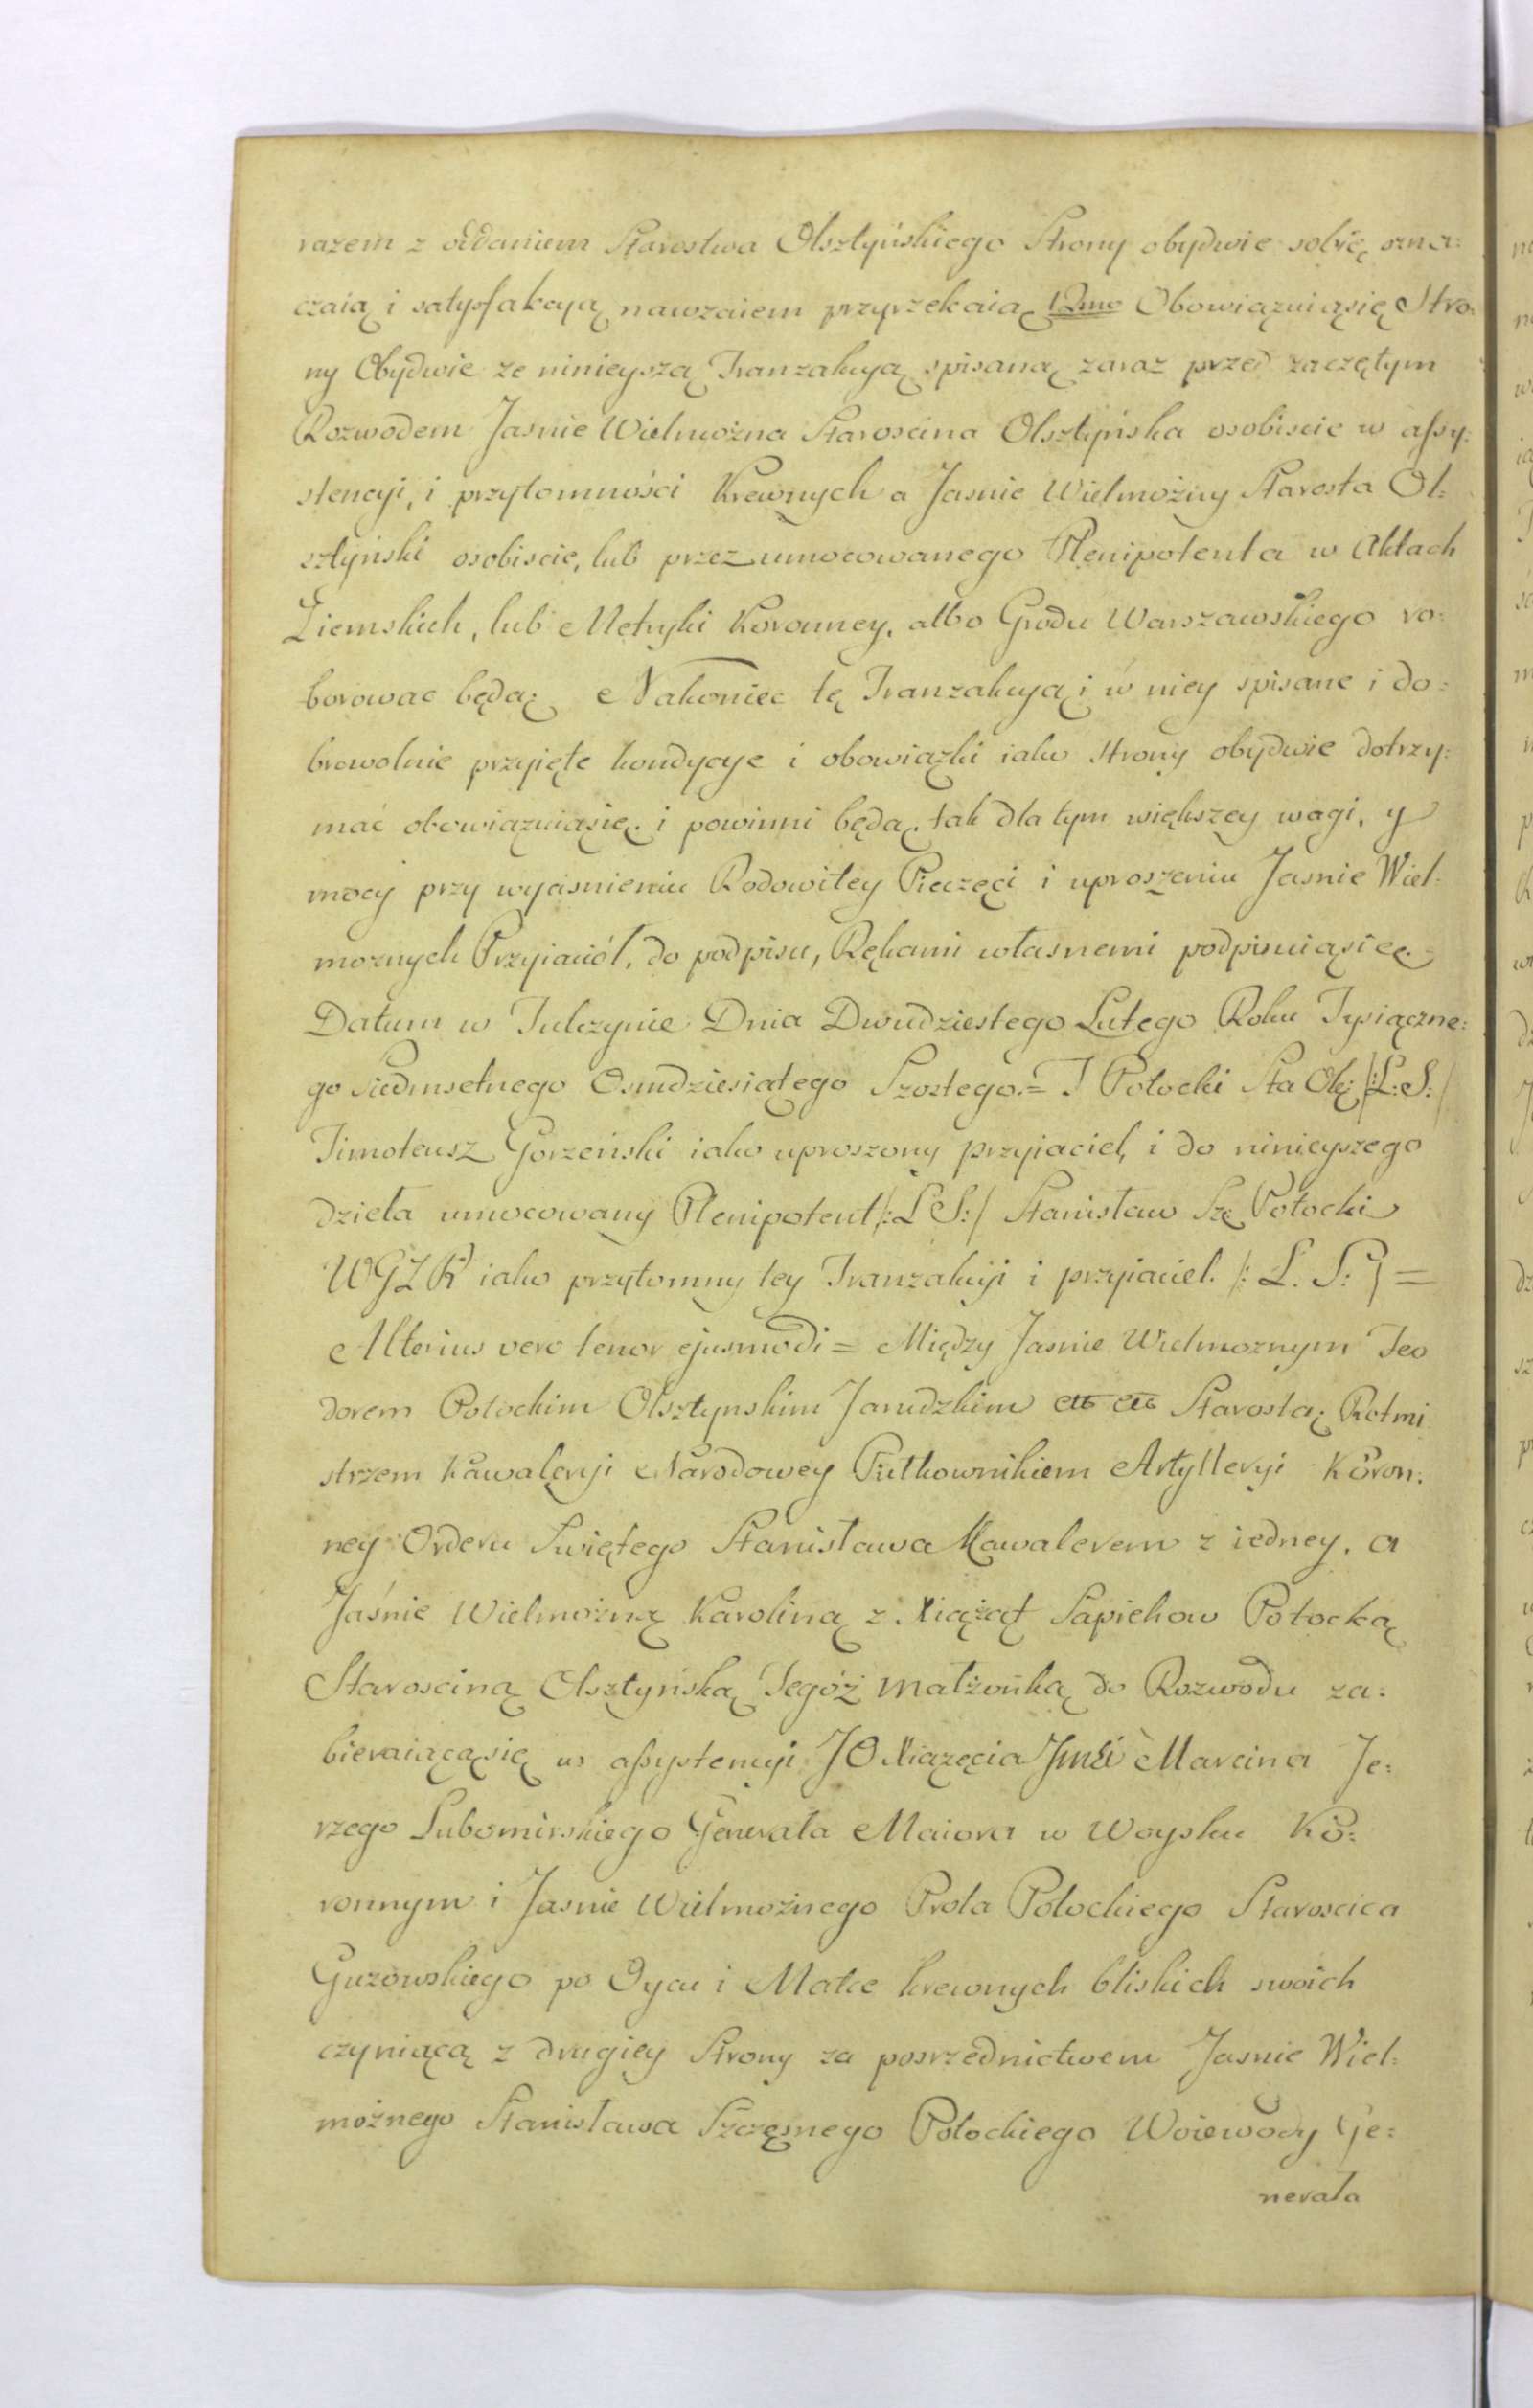 razem z oddaniem Starostwa Olsztyńskiego Strony obydwie sobie ozna:
czaią i satysfakcyą nawzaiem przyrzekaią 12mo Obowiązuiąsię Stro:
ny Obydwie ze ninieyszą Tranzakcyą spisaną zaraz przed zaczętym
Rozwodem Jasnie Wielmożna Starościna Olsztyńska osobiscie w assy:
stencyi, i przytomności Krewnych a Jasnie Wielmożny Starosta Ol:
sztyński osobiscie, lub przez umocowanego Plenipotenta w Aktach
Ziemskich, lub Metryki Koronney, albo Grodu Warszawskiego ro:
borowac będą; Nakoniec tę Tranzakcyą i w niey spisane i do:
browolnie przyięte kondycye i obowiązki iako strony obydwie dotrzy:
mać obowiązuiąsię i powinni będą, tak dla tym większey wagi, y
mocy przy wyciśnieniu Rodowitey Pieczęci i uproszeniu Jasnie Wiel:
moznych Przyiaciół, do podpisu, Rękami własnemi podpisuiąsię.
Datum w Tulczynie Dnia Dwudziestego Lutego Roku Tysiączne:
go siedmsetnego Osmdziesiątego Szostego.= T Potocki Sta Ols: /:L:S:/
Timoteusz Gorzeński iako uproszony przyiaciel, i do ninieyszego
dzieła umocowany Plenipotent /:L S:/ Stanisław Szę Potocki
WGZR iako przytomny tey Tranzakcyi i przyiaciel. /: L. S:/ =
Alterius vero tenor ejusmodi = Między Jasnie Wielmoznym Teo
dorem Potockim Olsztynskim Janudzkim etc etc Starostą; Rotmi
strzem Kawaleryi Narodowey Pułkownikiem Artylleryi Koron:
ney Orderu Swiętego Stanisława Kawalerem z iedney, a
Jaśnie Wielmożną Karoliną z Xiążąt Sapiehow Potocką
Starosciną Olsztyńską Tegóż Małżonką do Rozwodu za:
bieraiącąsię w assystencyi JO Xiązęcia Jmći Marcina Je:
rzego Lubomirskiego Generała Maiora w Woysku Ko:
ronnym i Jasnie Wielmożnego Prota Potockiego Staroscica
Guzowskiego po Oycu i Matce krewnych bliskich swoich
czyniącą z drugiey Strony za posrzednictwem Jasnie Wiel:
możnego Stanisława Szczęsnego Potockiego Woiewody Ge:
nerała